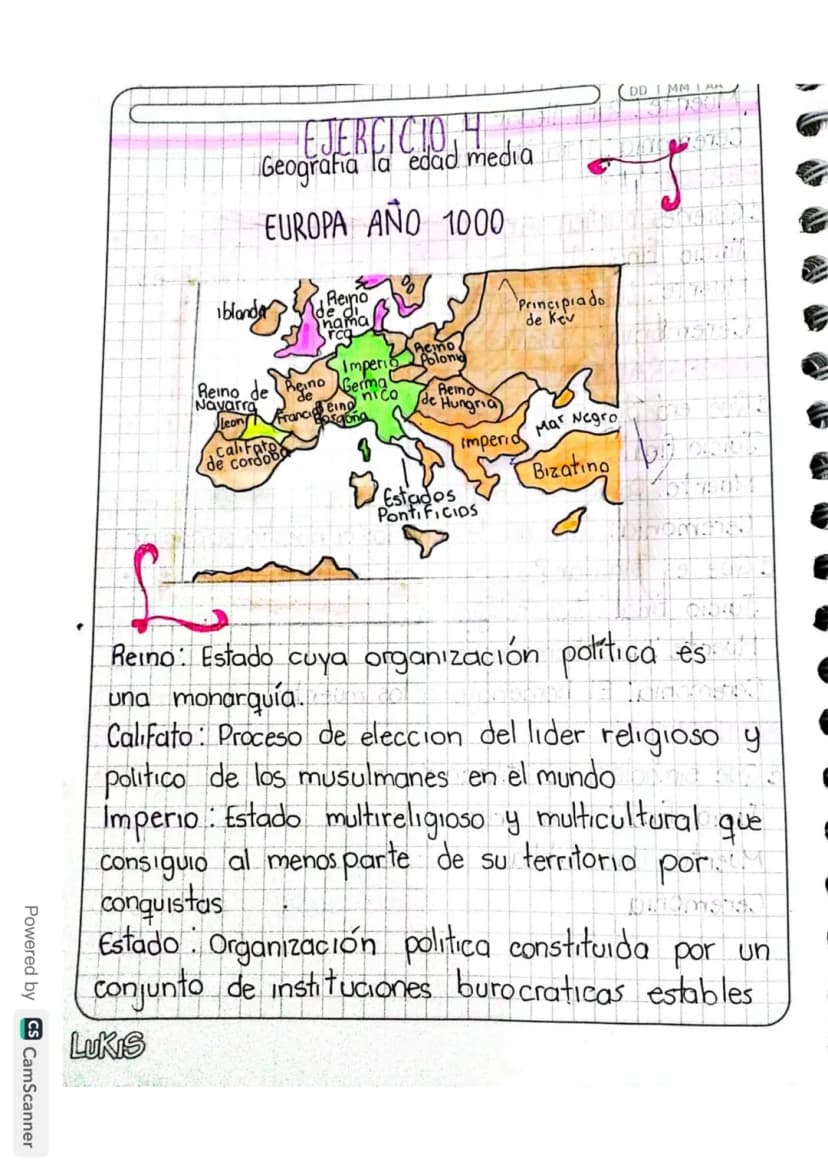 DD MM AA
EJERCICIO 4
Geografia la edad media
EUROPA AÑO 1000
Iblanda
Reino
de di
nama
rca
Principiado
de Kev
Reino
Polonia
Imperio
Germa
nico
Reino de
Navarra
Reino
de
Francia
Reino
Borgoña
Reino
de Hungria
Leon
Mar Negro
Imperio
Califato
de cordoba
Bizatino
Estados
Pontificios
Reino: Estado cuya organización política es
una monarquía.
Califato: Proceso de eleccion del lider religioso y
politico de los musulmanes en el mundo
Imperio: Estado multireligioso y multicultural que
consiguio al menos parte de su territorio por
conquistas
Estado: Organización politica constituida por un
conjunto de instituciones burocraticas estables
LUKIS
Powered by CS CamScanner